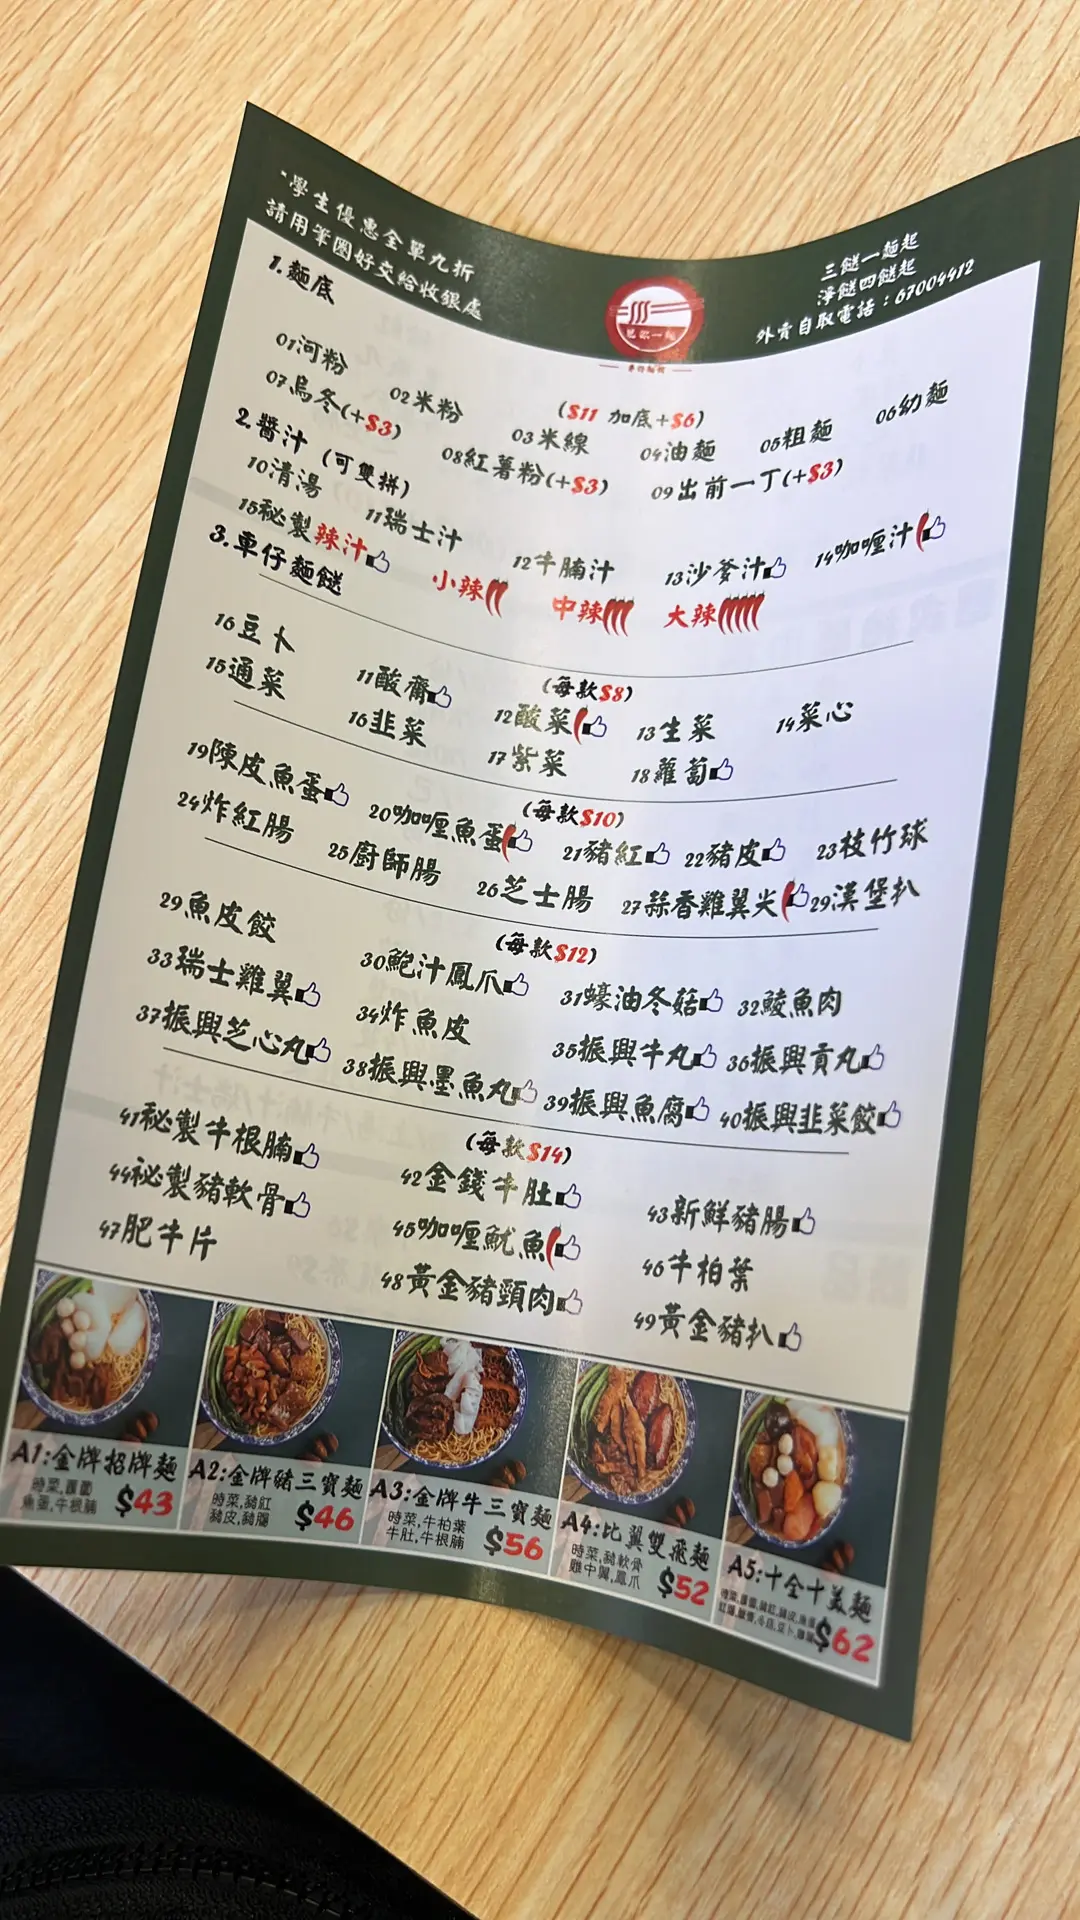 ·學生優惠全單九折
請用筆圈好交給收銀處
三餸一麵起
淨餸四餸起
外賣自取電話：67004412
1.麵底
($11 加底+$6)
01河粉 02米粉 03米線 04油麵 05粗麵 06幼麵
07烏冬(+$3) 08紅薯粉(+$3) 09出前一丁(+$3)
2.醬汁 (可雙拼)
10清湯 11瑞士汁 12牛腩汁 13沙爹汁 14咖喱汁
15秘製辣汁 小辣 中辣 大辣
3.車仔麵餸
(每款$8)
16豆卜 11酸齋 12酸菜 13生菜 14菜心
15通菜 16韭菜 17紫菜 18蘿蔔
(每款$10)
19陳皮魚蛋 20咖喱魚蛋 21豬紅 22豬皮 23枝竹球
24炸紅腸 25廚師腸 26芝士腸 27蒜香雞翼尖 29漢堡扒
(每款$12)
29魚皮餃 30鮑汁鳳爪 31蠔油冬菇 32鯪魚肉
33瑞士雞翼 34炸魚皮 35振興牛丸 36振興貢丸
37振興芝心丸 38振興墨魚丸 39振興魚腐 40振興韭菜餃
(每款$14)
41秘製牛根腩 42金錢牛肚 43新鮮豬腸
44祕製豬軟骨 45咖喱魷魚 46牛柏葉
47肥牛片 48黃金豬頸肉 49黃金豬扒
A1:金牌招牌麵
時菜,蘿蔔
魚蛋,牛根腩 $43
A2:金牌豬三寶麵
時菜,豬紅
豬皮,豬腸 $46
A3:金牌牛三寶麵
時菜,牛柏葉
牛肚,牛根腩 $56
A4:比翼雙飛麵
時菜,豬軟骨
雞中翼,鳳爪 $52
A5:十全十美麵
$62